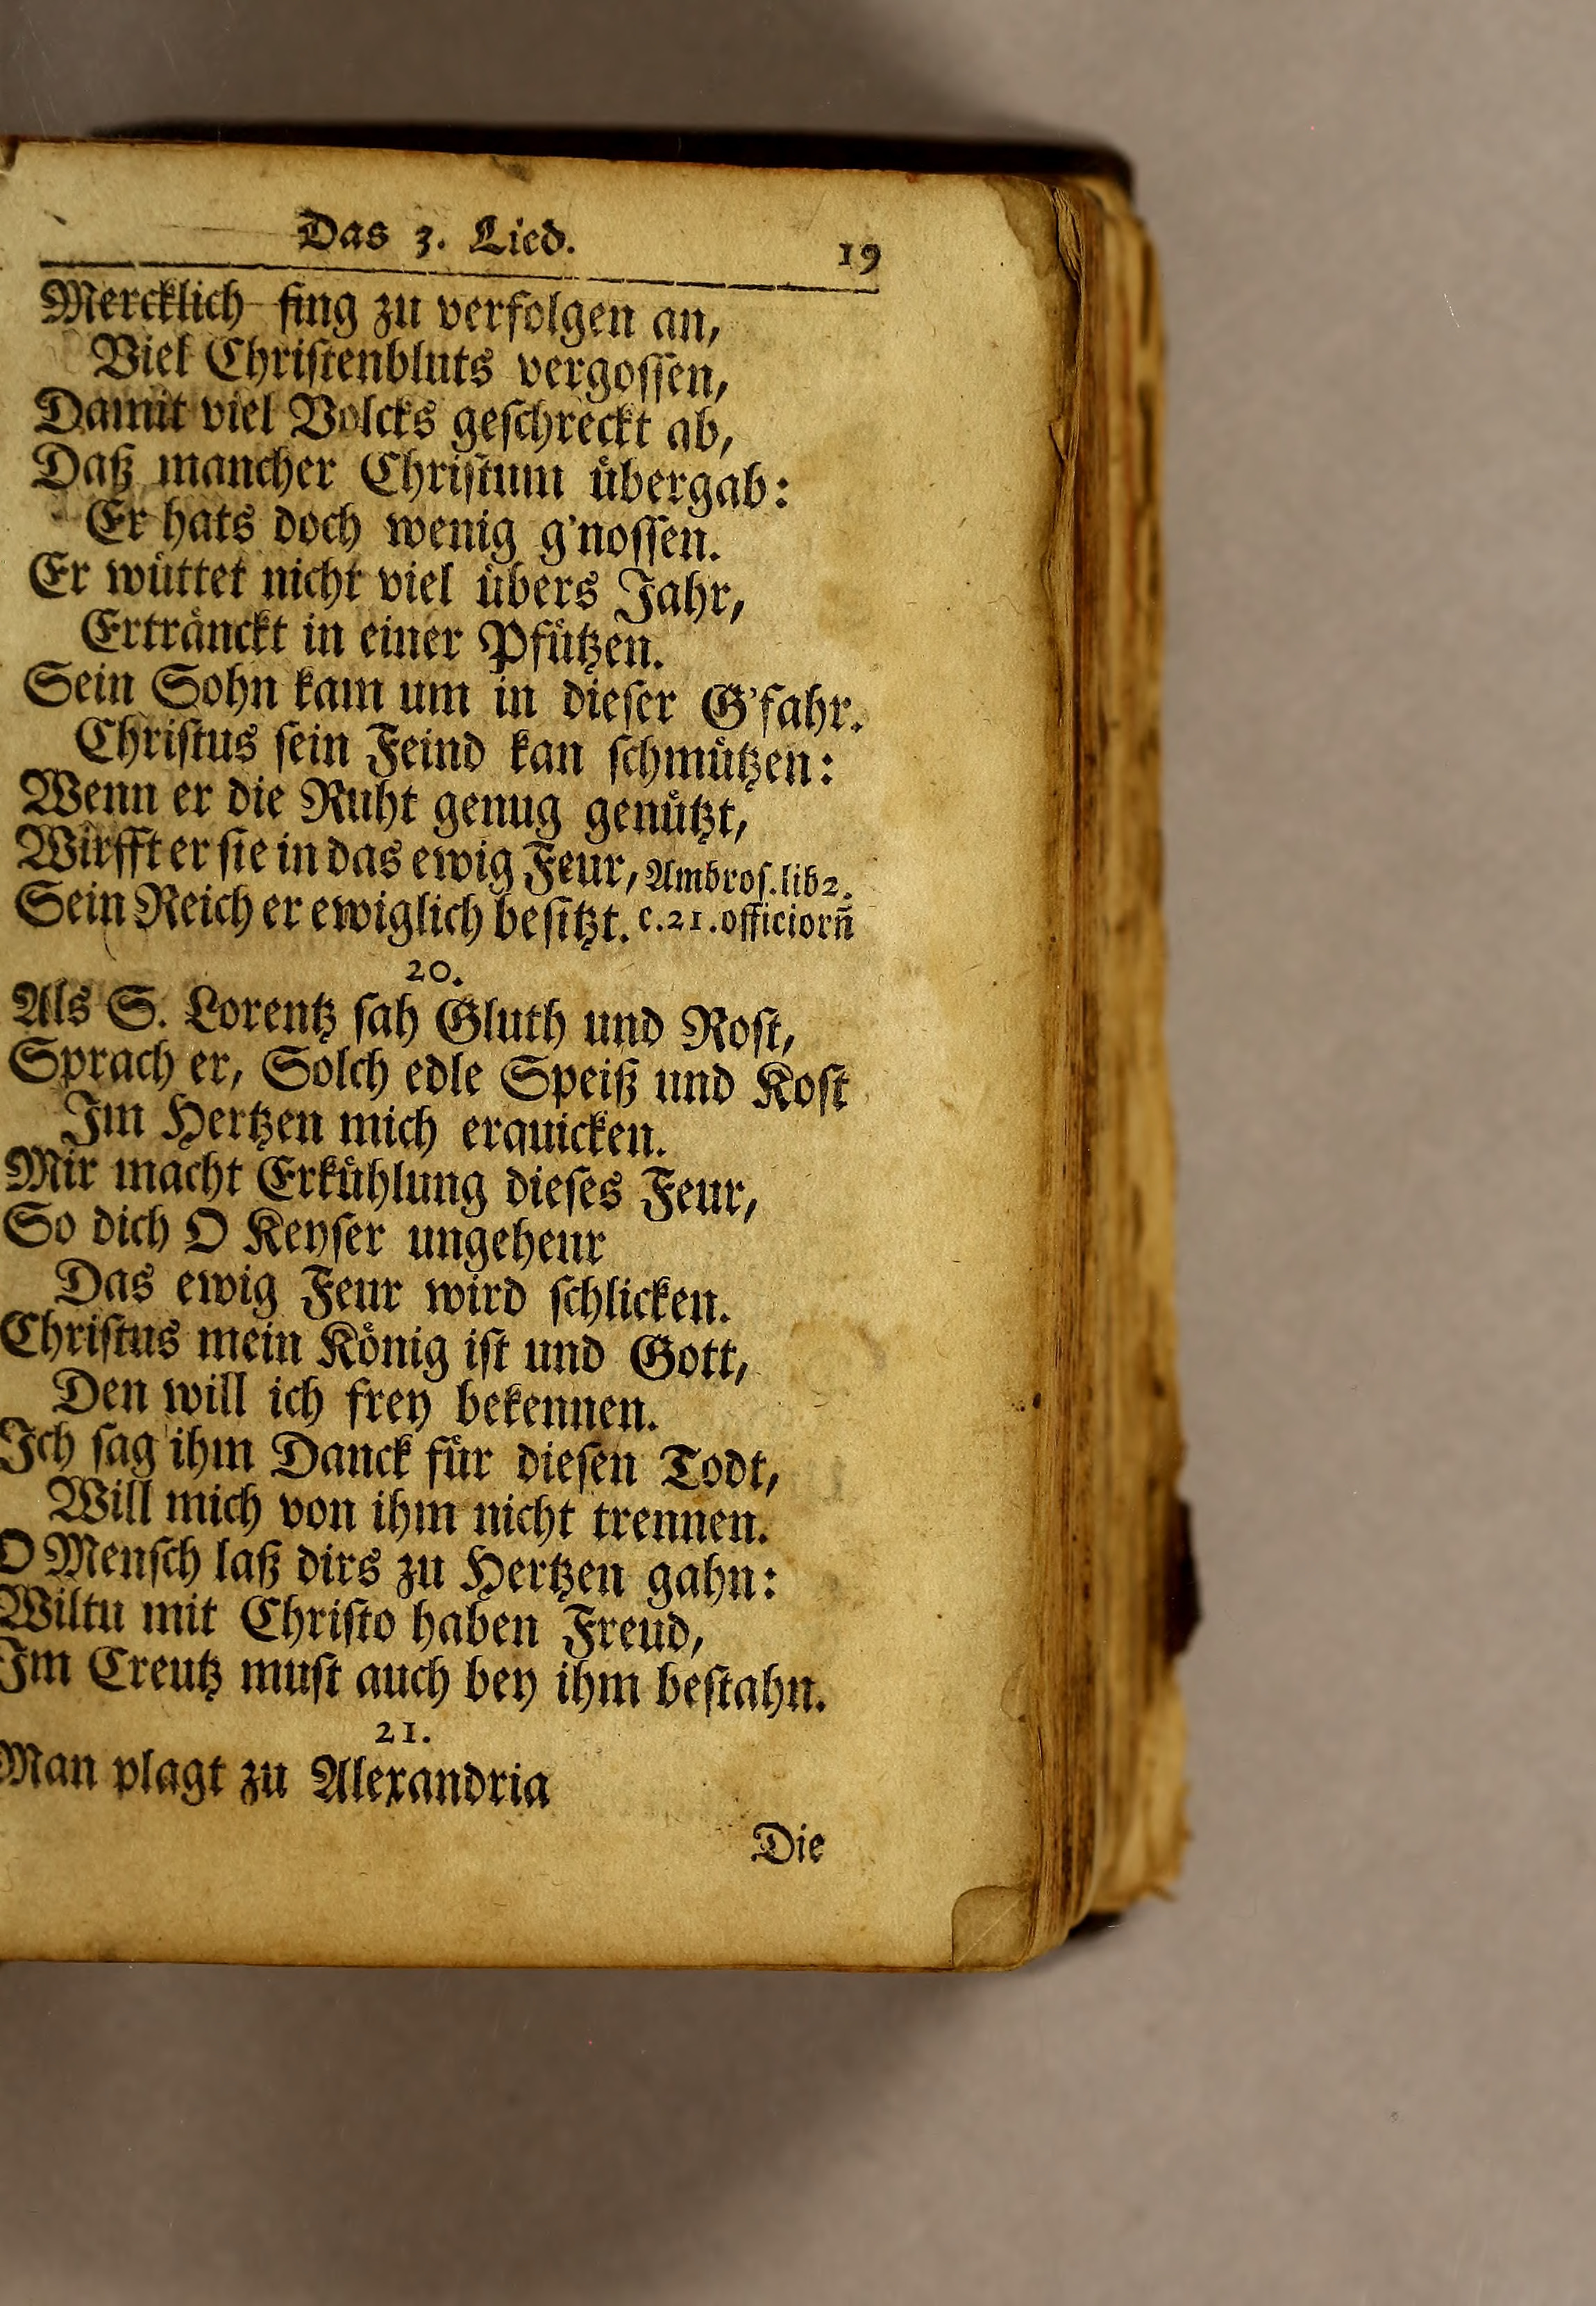 Das 3. Lied. 19
Mercklich fing zu verfolgen an,
Viel Chriſtenbluts vergoſſen,
Damit viel Volcks geſchreckt ab,
Daß mancher Chriſtum uͤbergab:
Er hats doch wenig g'noſſen.
Er wuͤttet nicht viel uͤbers Jahr,
Ertraͤnckt in einer Pfuͤtzen.
Sein Sohn kam um in dieſer G'fahr.
Chriſtus ſein Feind kan ſchmuͤtzen:
Wenn er die Ruht genug genuͤtzt,
Wirfft er ſie in das ewig Feur, Ambroſ.lib2.
Sein Reich er ewiglich beſitzt. c.21.officiorũ
20.
Als S. Lorentz ſah Gluth und Roſt,
Sprach er, Solch edle Speiß und Koſt
Im Hertzen mich erquicken.
Mir macht Erkuͤhlung dieſes Feur,
So dich O Keyſer ungeheur
Das ewig Feur wird ſchlicken.
Chriſtus mein Koͤnig iſt und Gott,
Den will ich frey bekennen.
Ich ſag ihm Danck fuͤr dieſen Todt,
Will mich von ihm nicht trennen.
O Menſch laß dirs zu Hertzen gahn:
Wiltu mit Chriſto haben Freud,
Im Creutz muſt auch bey ihm beſtahn.
21.
Man plagt zu Alexandria
Die